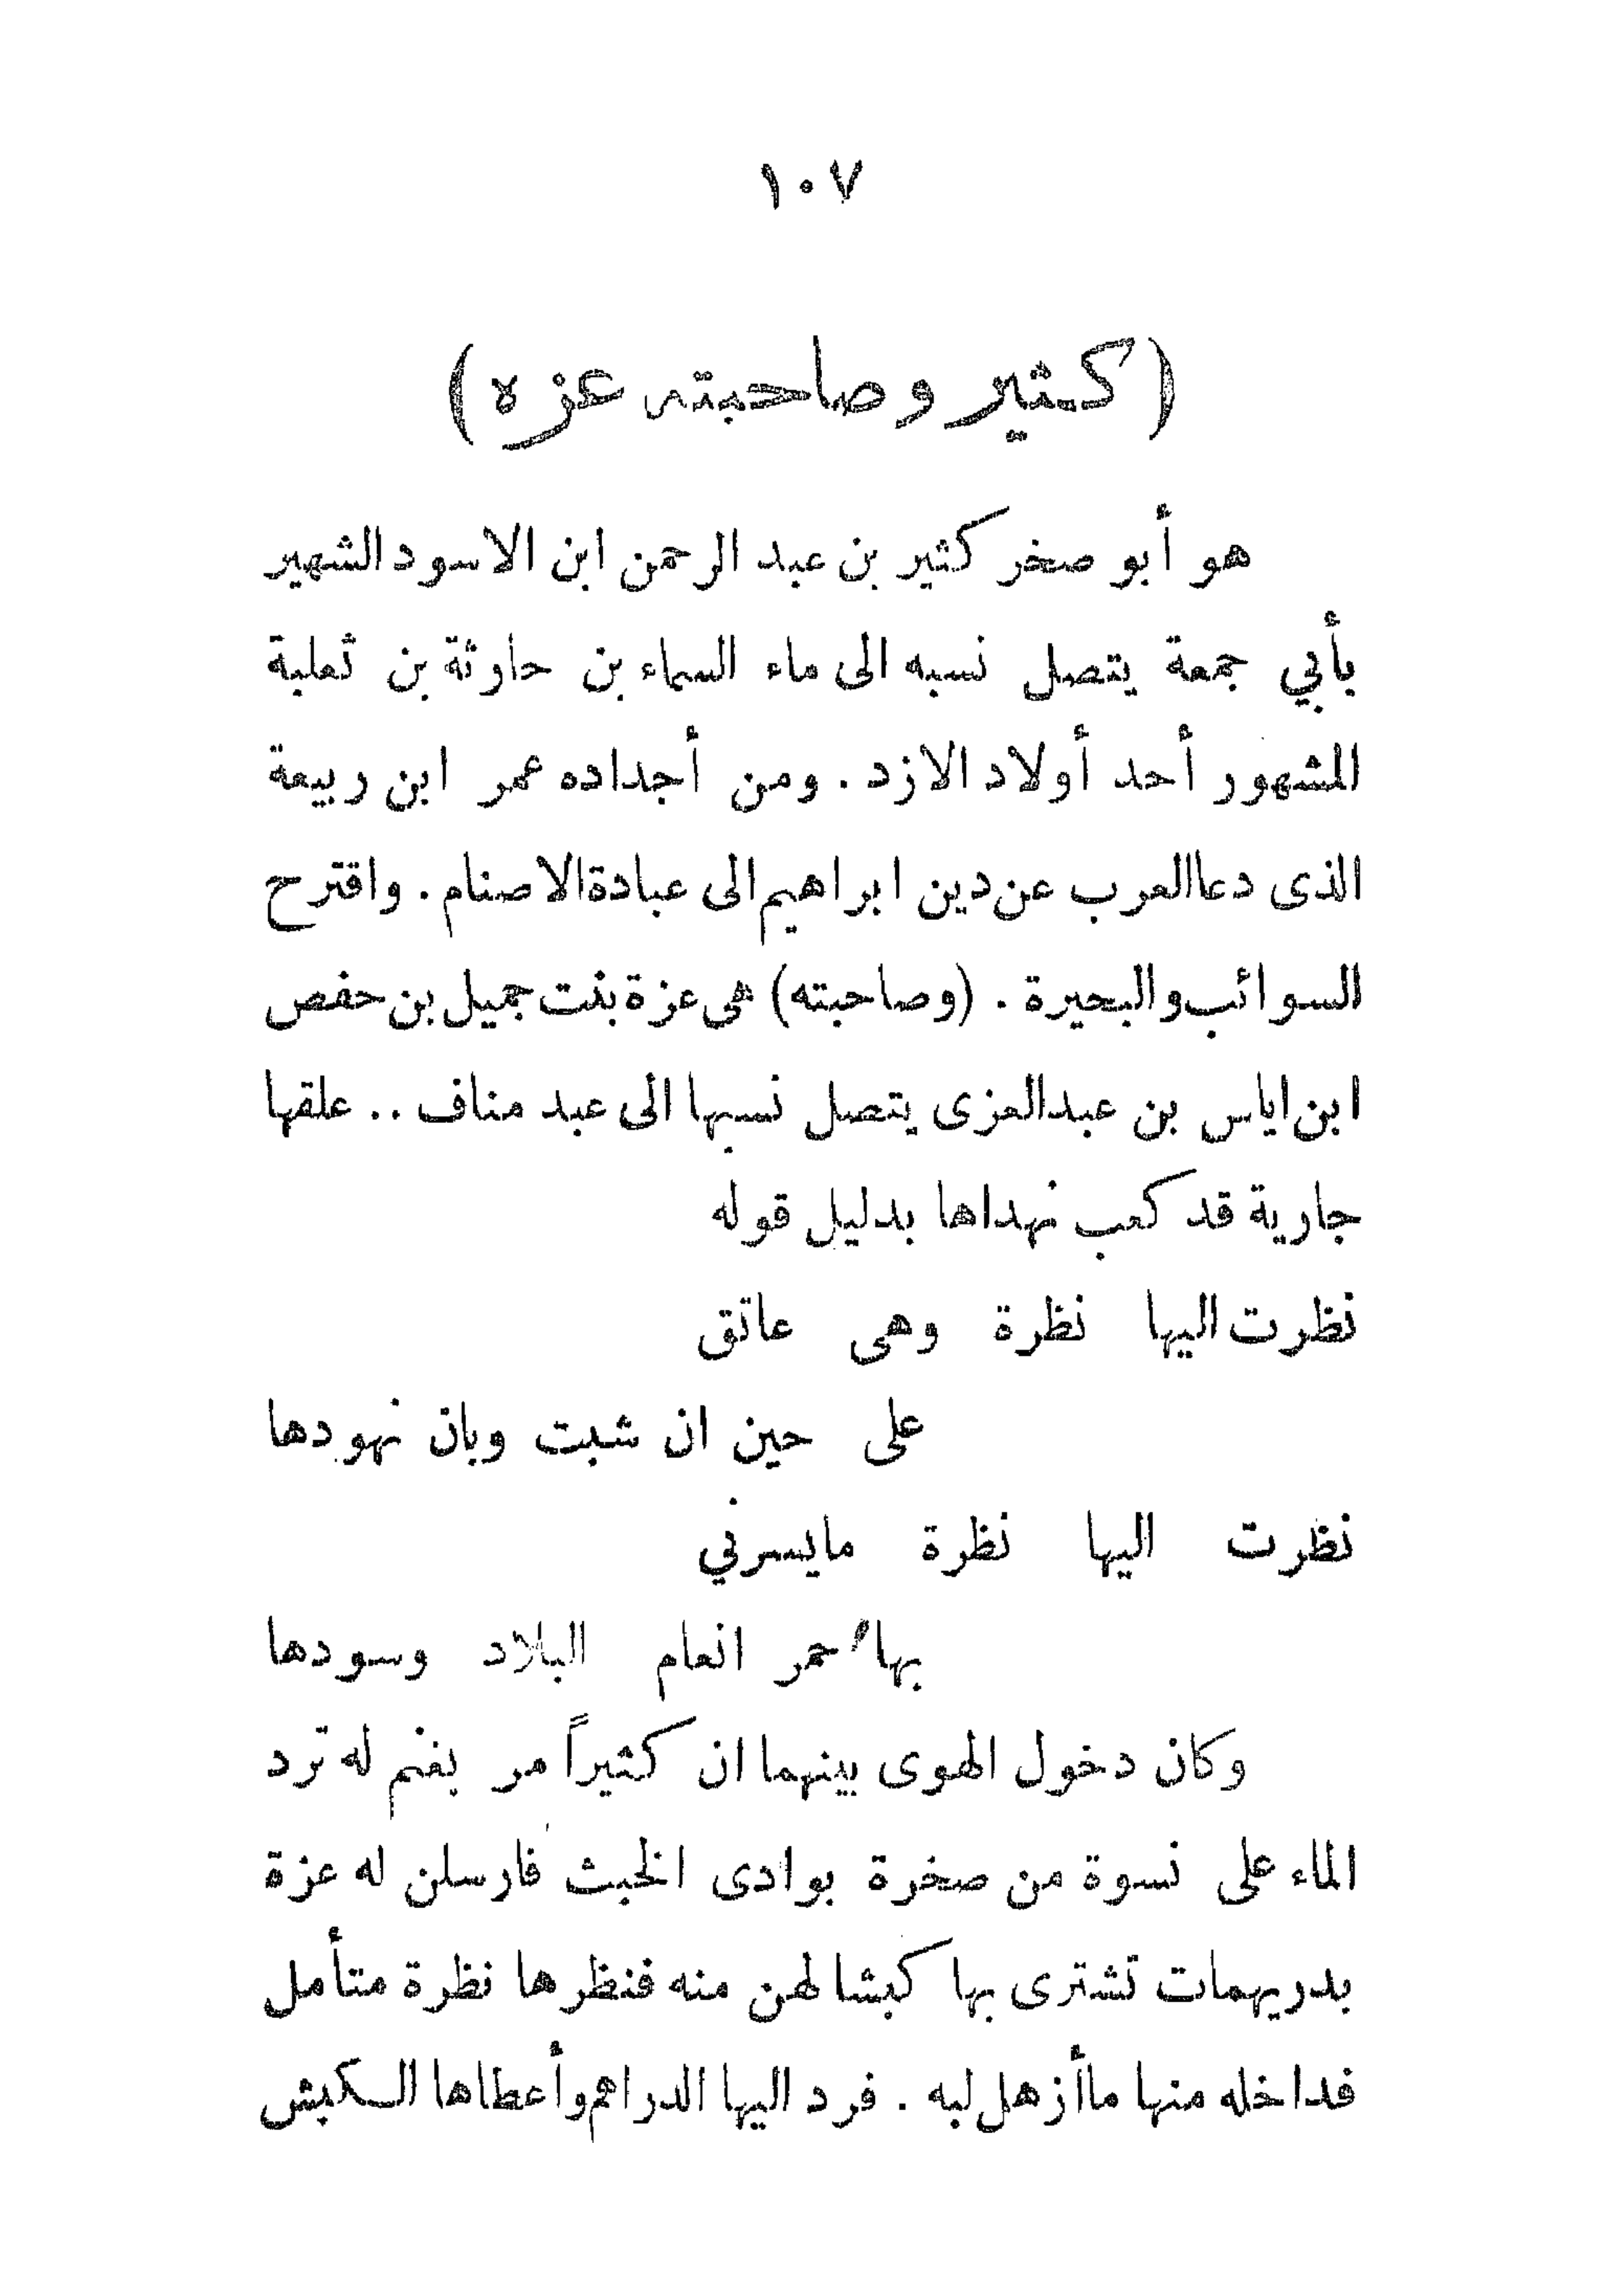 ١٠٧
( كثير وصاحبته عزه )
هو أبو صخر كثير بن عبد الرحمن ابن الاسود الشهير
بأبي جمعة يتصل نسبه الى ماء السماء بن حارثة بن ثعلبة
المشهور أحد أولاد الازد . ومن أجداده عمر ابن ربيعة
الذى دعا العرب عن دين ابراهيم الى عبادة الاصنام . واقترح
السوائب والبحيرة . (وصاحبته) هى عزة بنت جميل بن حفص
ابن اياس بن عبد العزى يتصل نسبها الى عبد مناف .. علقها
جارية قد كعب نهداها بدليل قوله
نظرت اليها نظرة وهى عاتق
على حين ان شبت وبان نهودها
نظرت اليها نظرة مايسرني
بها حمر انعام البلاد وسودها
وكان دخول الهوى بينهما ان كثيراً مر بغنم له ترد
الماء على نسوة من صخرة بوادى الخبث فارسلن له عزة
بدريهمات تشترى بها كبشا لهن منه فنظرها نظرة متأمل
فداخله منها ماأزهل لبه . فرد اليها الدراهم وأعطاها الكبش